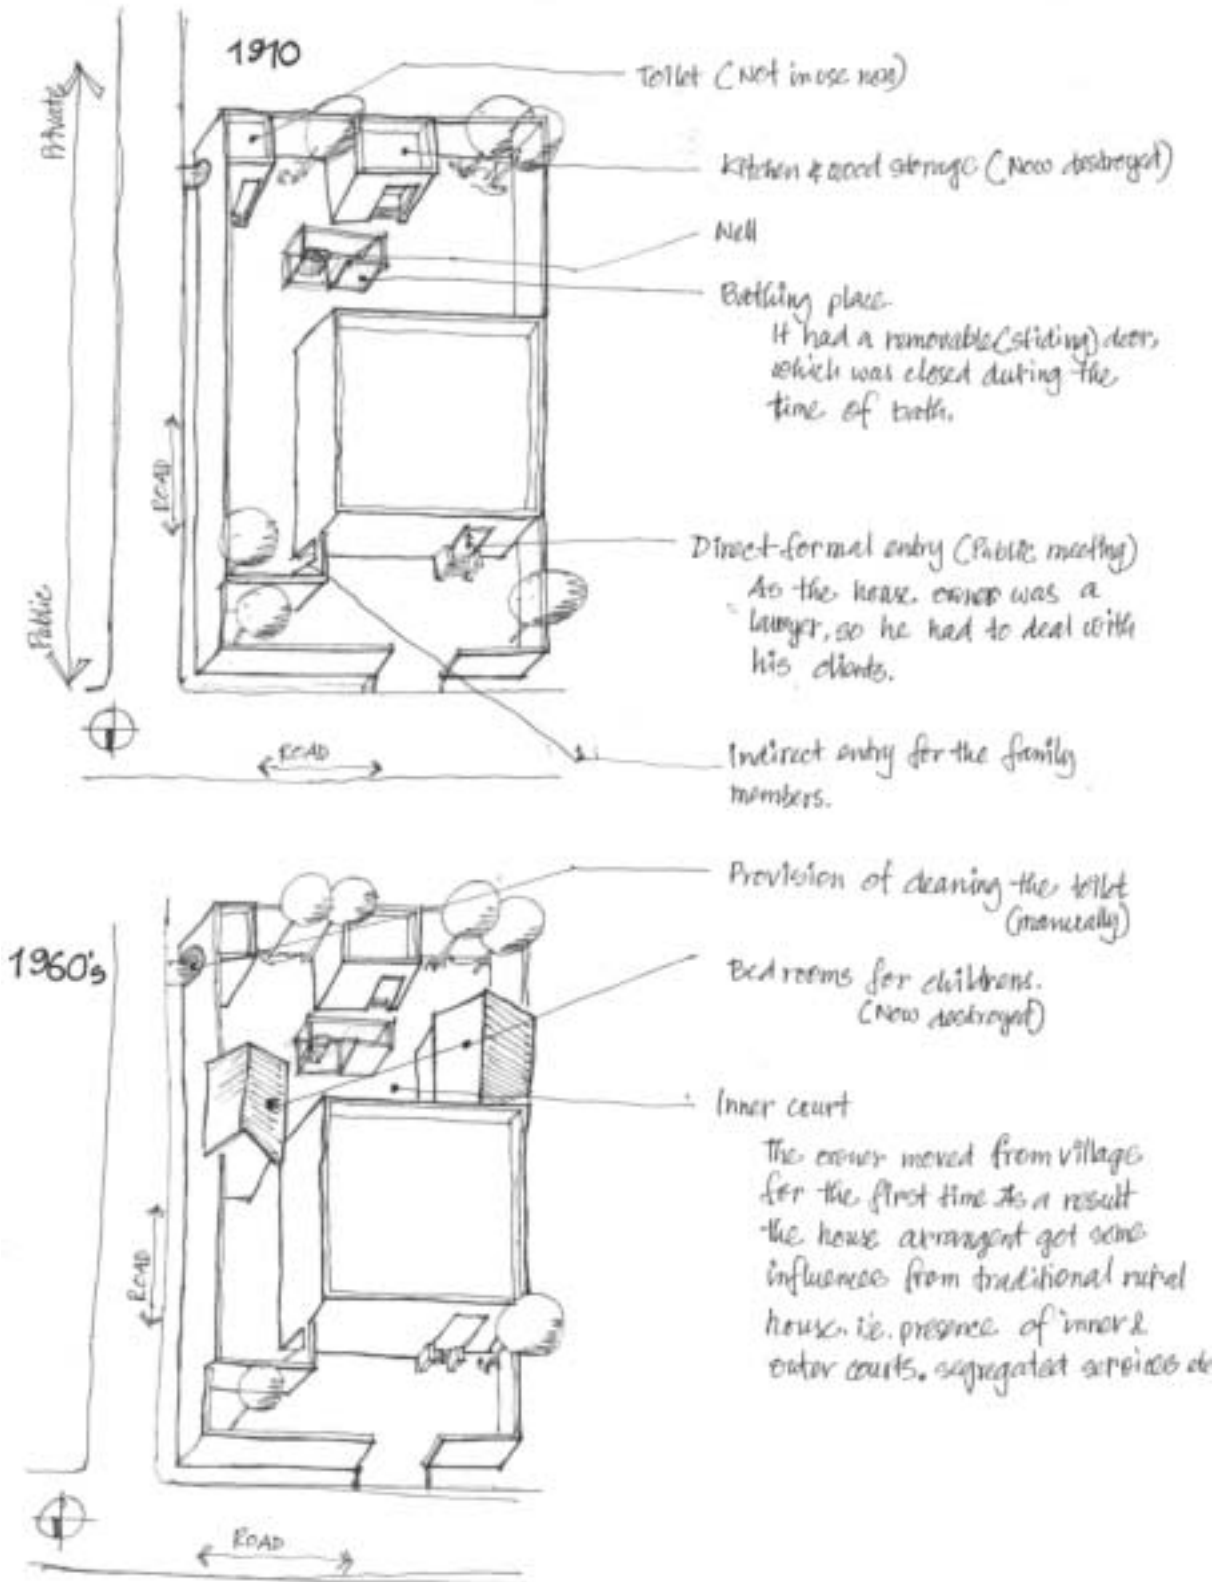 1910
Private
Public
Toilet (Not in use now)
Kitchen & wood storage (Now destroyed)
Well
Bathing place.
It had a removable (sliding) door,
which was closed during the
time of bath.
ROAD
Direct formal entry (Public meeting)
As the house owner was a
lawyer, so he had to deal with
his clients.
ROAD
Indirect entry for the family
members.
1960's
Provision of cleaning the toilet
(manually)
Bedrooms for childrens.
(Now destroyed)
Inner court
The owner moved from village
for the first time As a result
the house arrangent got some
influences from traditional rural
house. i.e. presence of inner &
outer courts. segregated services etc
ROAD
ROAD